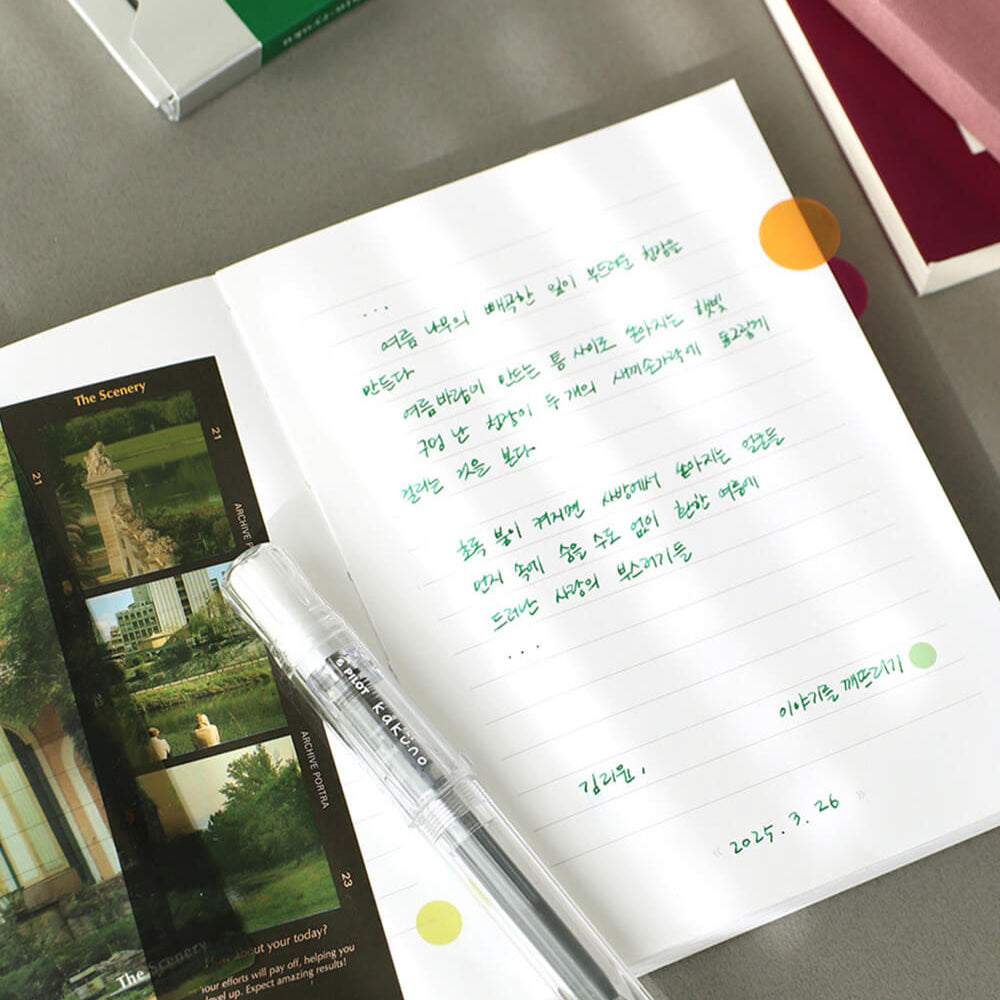 The Scenery
21
21
ARCHIVE
ARCHIVE PORTRA
23
about your today?
Your efforts will pay off, helping you
level up. Expect amazing results!
The Scenery
PILOT
kakuno
...
여름 나무의 빼곡한 잎이 부드러운 천장을
만든다
여름바람이 만드는 틈 사이로 쏟아지는 햇빛
구멍 난 천장이 두 개의 새끼손가락에 동그랗게
걸리는 것을 본다
초록 불이 켜지면 사방에서 쏟아지는 얼굴들
먼지 속에 숨을 수도 없이 환한 여름에
드러난 사랑의 부스러기들
...
이야기를 깨뜨리기
김리윤,
2025.3.26